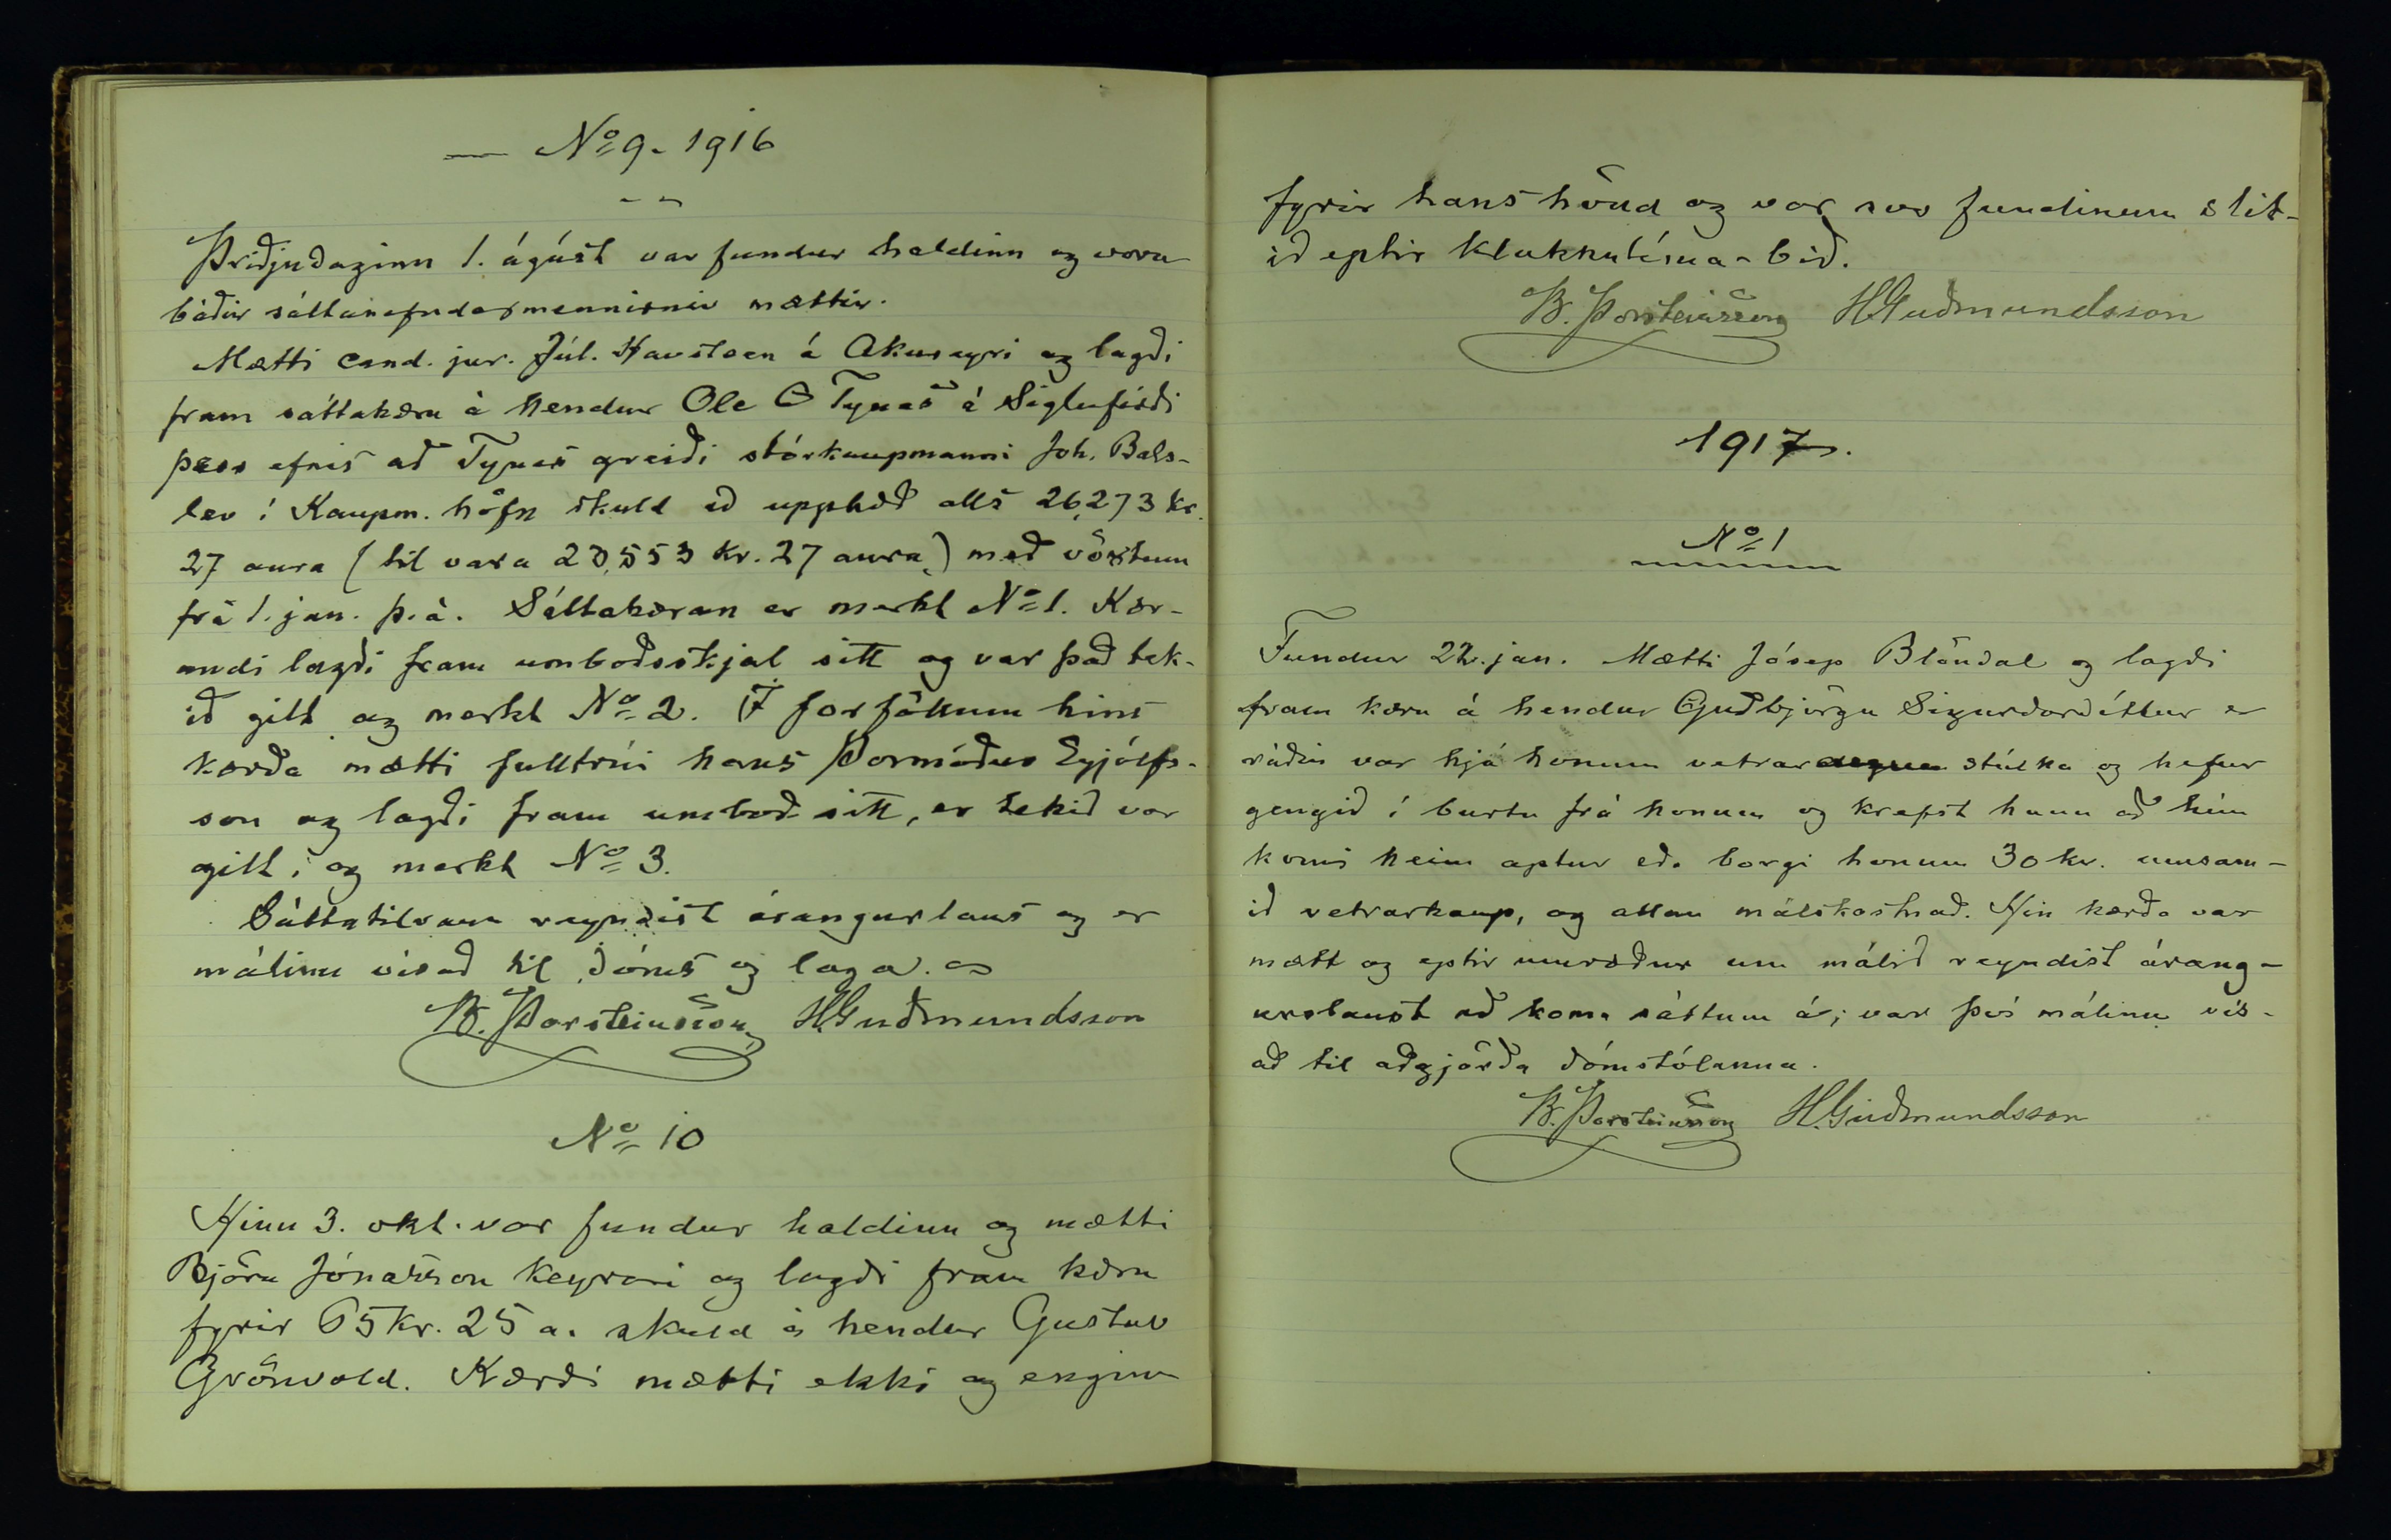 No 9. 1916
Þriðjudaginn 1. ágúst var fundur haldinn og voru
báðir sáttanefndarmennirnir mættir.
Mætti cand. jur. Júl. Havsteen á Akureyri og lagði
fram sáttakæru á hendur Ole O Tynes á Siglufirði
þess efnis að Tynes greiði stórkaupmanni Joh. Bals-
lev í Kaupm. höfn skuld að upphæð alls 26,273 kr.
27 aura (til vara 20,553 kr. 27 aura) með vöxtum
frá 1. jan. þ.á. Sáttakæran er merkt No 1. Kær-
andi lagði fram umboðsskjal sitt og var það tek-
ið gilt og merkt No 2. Í forföllum hins
kærða mætti fulltrúi hans Þormóður Eyjólfs-
son og lagði fram umboð sitt, er tekið var
gilt; og merkt No 3.
Sáttatilraun reyndist árangurlaus og er
málinu vísað til dóms og laga.
B. Þorsteinsson HGuðmundsson
No 10
Hinn 3. okt. var fundur haldinn og mætti
Björn Jónasson keyrari og lagði fram kæru
fyrir 65 kr. 25 a. skuld á hendur Gustav
Grönvold. Kærði mætti ekki og enginn
fyrir hans hönd og var svo fundinum slit-
ið eptir klukkutíma-bið.
B. Þorsteinsson HGuðmundsson
1917.
No 1
Fundur 22. jan. Mætti Jósep Blöndal og lagði
fram kæru á hendur Guðbjörgu Sigurðardóttur er
ráðin var hjá honum vetrar stúlka og hefur
gengið í burtu frá honum og krefst hann að hún
komi heim aptur eða borgi honum 30 kr. umsam-
ið vetrarkaup, og allan málskostnað. Hin kærða var
mætt og eptir umræður um málið reyndist árang-
urslaust að koma sáttum á; var því málinu vís-
að til aðgjörða dómstólanna.
B. Þorsteinsson H.Guðmundsson